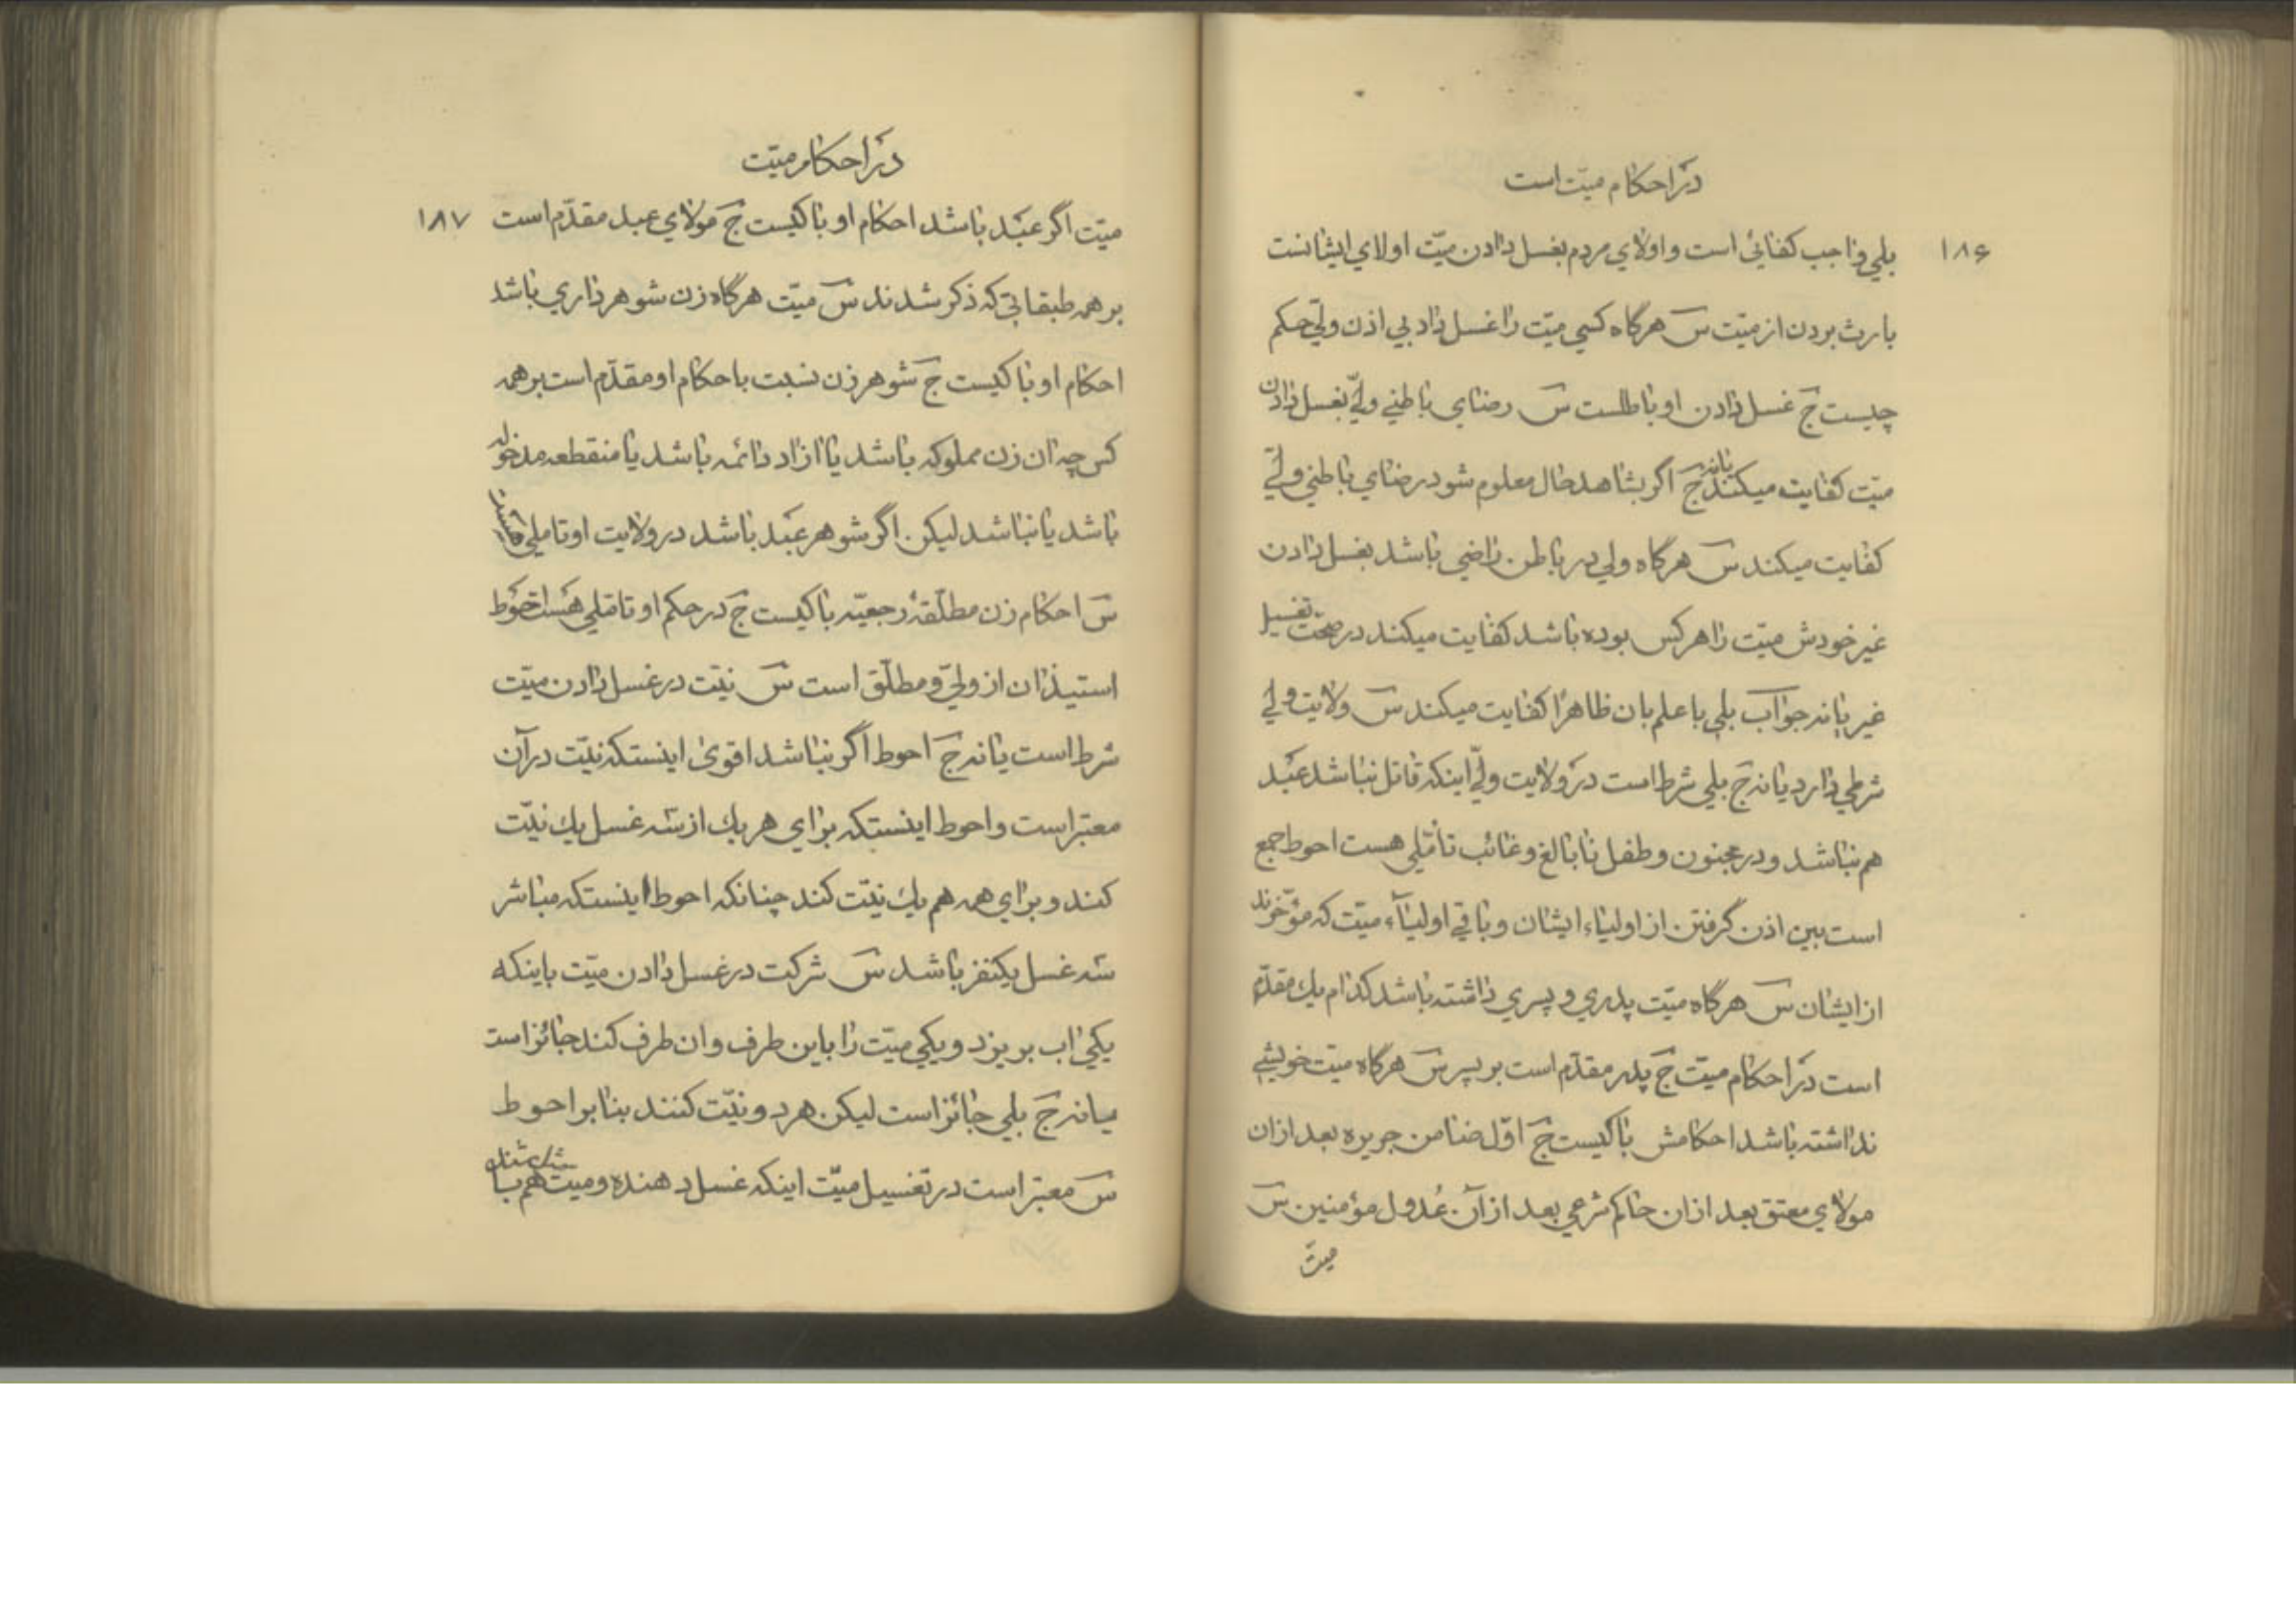 در احکام میّت است
۱۸۶
بلی واجب کفائی است و اولای مردم بغسل دادن میّت اولای ایشانست
بارث بردن از میّت س هرگاه کسی میّت را غسل داد بی اذن ولیّ حکم
چیست ج غسل دادن او باطلست س رضای باطنی ولیّ بغسل دادن
میّت کفایت میکند یا نه ج اگر بشاهد حال معلوم شود رضای باطنی ولیّ
کفایت میکند س هرگاه ولی در باطن راضی باشد بغسل دادن
غیر خودش میّت را هر کس بوده باشد کفایت میکند در صحّت تغسیل
غیر یا نه جواب بلی با علم بان ظاهرًا کفایت میکند س ولایت ولیّ
شرطی دارد یا نه ج بلی شرط است در ولایت ولیّ اینکه قاتل نباشد عبد
هم نباشد و در مجنون و طفل نابالغ و غائب تأمّلی هست احوط جمع
است بین اذن گرفتن از اولیاء ایشان و باقی اولیآء میّت که مؤخّرند
از ایشان س هرگاه میّت پدری و پسری داشته باشد کدام یك مقدّم
است در احکام میّت ج پدر مقدّم است بر پسر س هرگاه میّت خویشی
نداشته باشد احکامش با کیست ج اوّل ضامن جریره بعد از ان
مولای معتق بعد از ان حاکم شرعی بعد از آن عُدول مؤمنین س
میّت
در احکام میّت
۱۸۷
میّت اگر عبد باشد احکام او با کیست ج مولای عبد مقدّم است
بر همه طبقاتی که ذکر شدند س میّت هرگاه زن شوهر داری باشد
احکام او با کیست ج شوهر زن نسبت باحکام او مقدّم است بر همه
کس چه ان زن مملوکه باشد یا ازاد دائمه باشد یا منقطعه مدخوله
باشد یا نباشد لیکن اگر شوهر عبد باشد در ولایت او تاملی
س احکام زن مطلّقهٔ رجعیّه با کیست ج در حکم او تاملی هست احوط
استیذان از ولیّ و مطلّق است س نیّت در غسل دادن میّت
شرط است یا نه ج احوط اگر نباشد اقوی اینستکه نیّت در آن
معتبر است و احوط اینستکه برای هر یك از سه غسل یك نیّت
کند و برای همه هم یك نیّت کند چنانکه احوط اینستکه مباشر
سه غسل یکنفر باشد س شرکت در غسل دادن میّت باینکه
یکی اب بریزد و یکی میّت را باین طرف و ان طرف کند جائز است
یا نه ج بلی جائز است لیکن هر دو نیّت کنند بنا بر احوط
س معتبر است در تغسیل میّت اینکه غسل دهنده و میّت هم